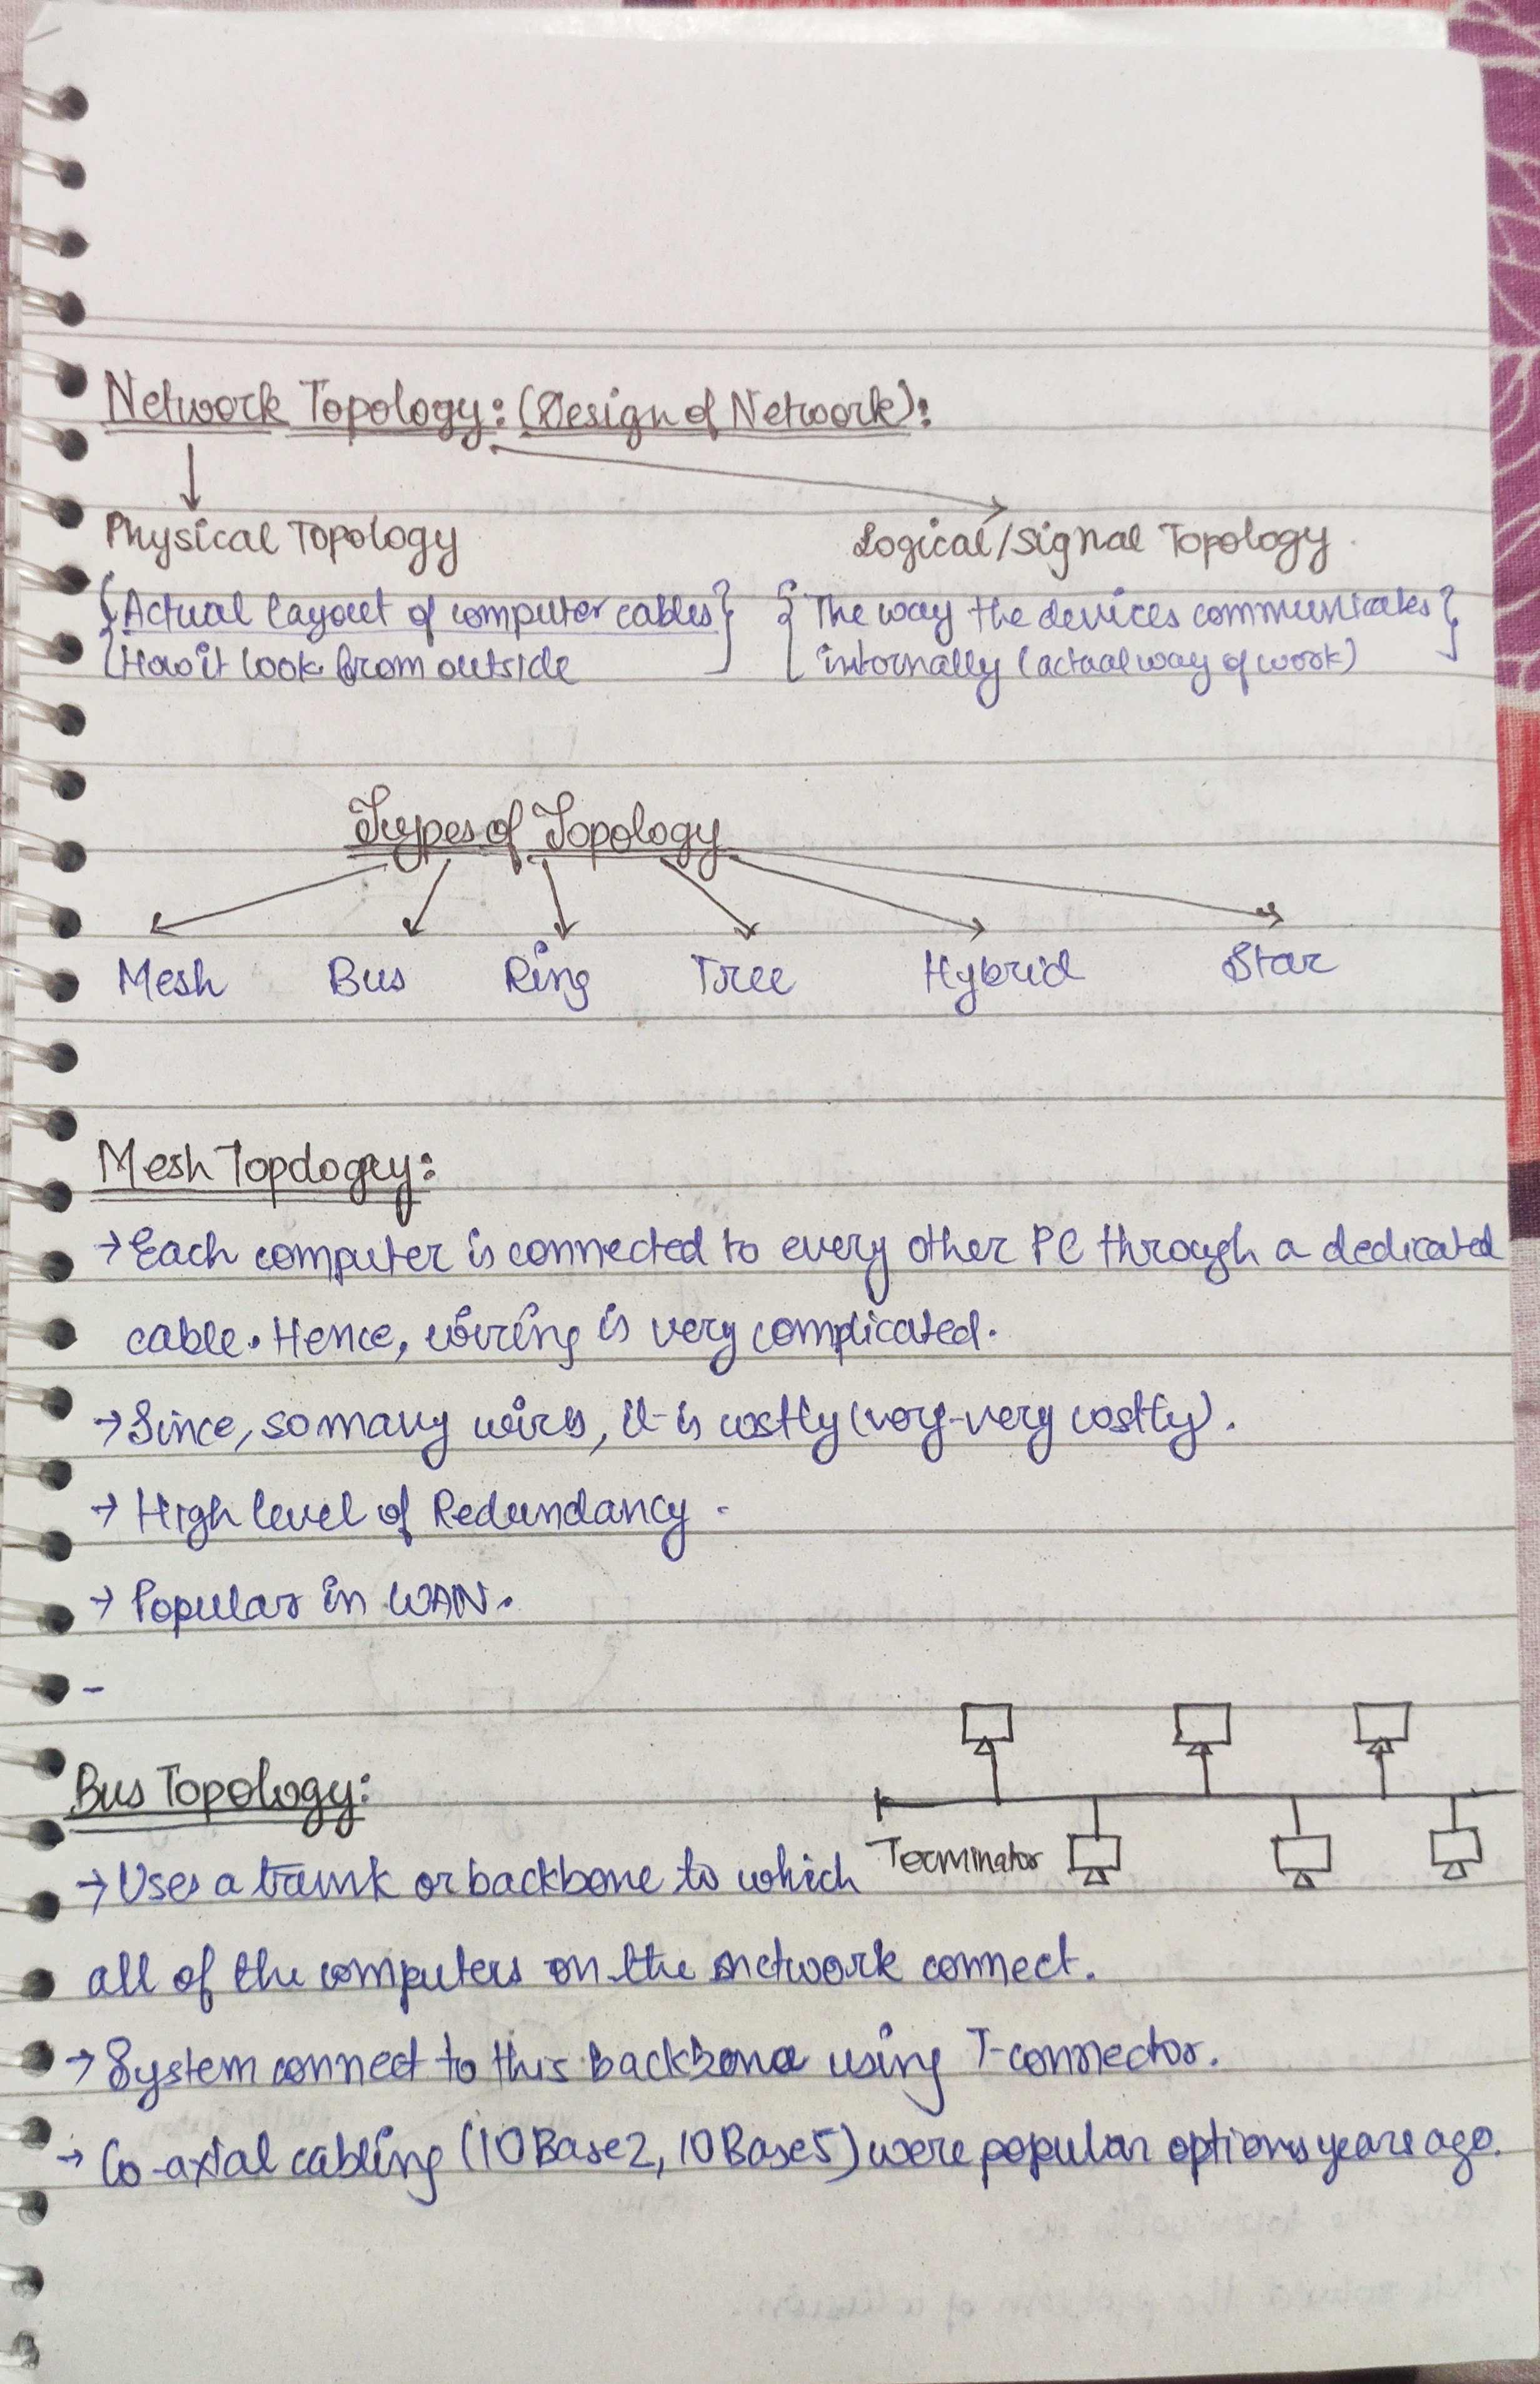 Network Topology: (Design of Network):
Physical Topology Logical/Signal Topology
{Actual layout of computer cables} {The way the devices communicates}
{How it look from outside} {internally (actual way of work)}
Types of Topology
Mesh Bus Ring Tree Hybrid Star
Mesh Topology:
→ Each computer is connected to every other PC through a dedicated
cable. Hence, wiring is very complicated.
→ Since, so many wires, it is costly (very-very costly).
→ High level of Redundancy.
→ Popular in WAN.
-
Bus Topology:
Terminator
→ Uses a trunk or backbone to which
all of the computers on the network connect.
→ System connect to this backbone using T-connector.
→ Co-axial cabling (10Base2, 10Base5) were popular options years ago.